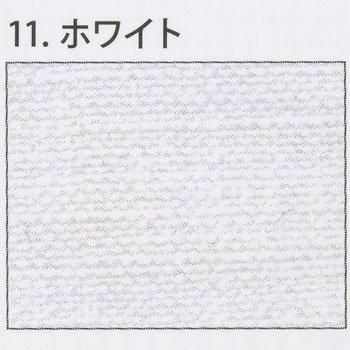 11. ホワイト